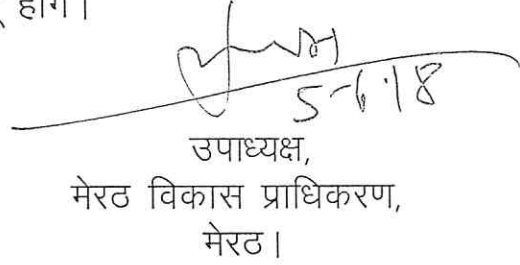 होंगे।
5-6-18
उपाध्यक्ष,
मेरठ विकास प्राधिकरण,
मेरठ।